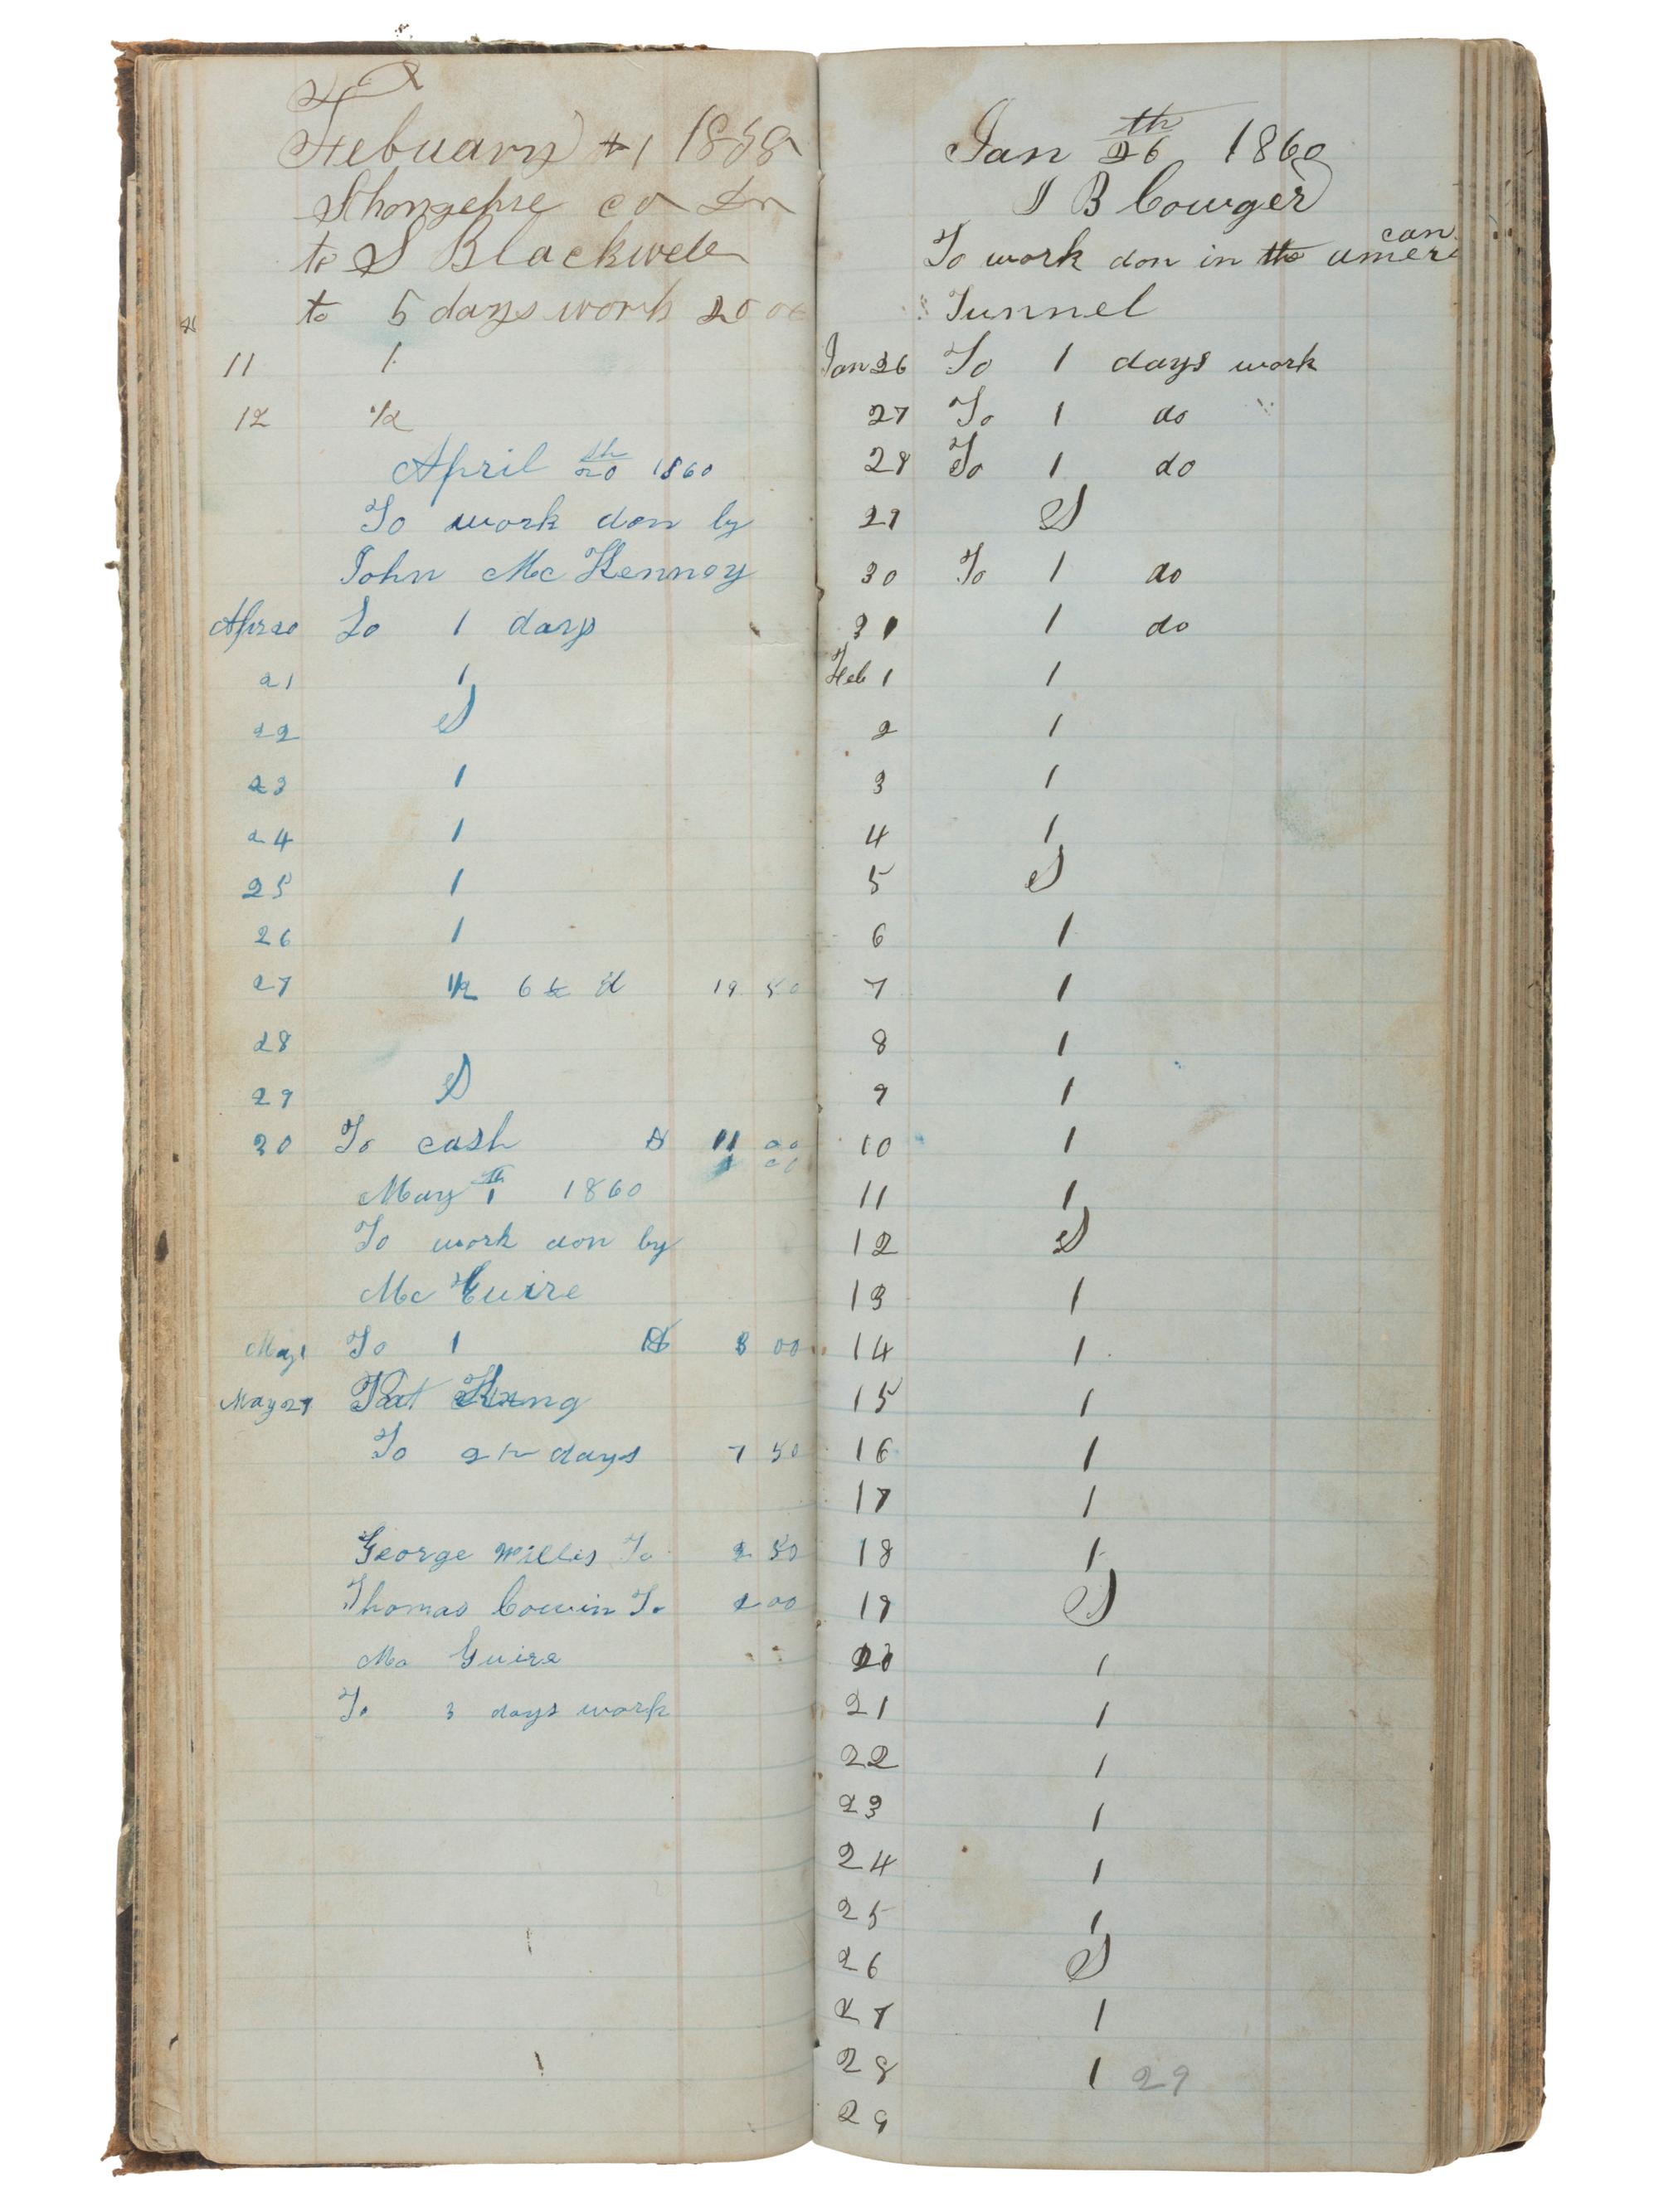 Febuary 1 1858
co Dr
to S Blackwell
to 5 days work 20 00
11 1
12 1/2
April 20th 1860
To work don by
John Mc Kenney
Apr 20 To 1 days
21 1
22 S
23 1
24 1
25 1
26 1
27 1/2 6 1/2 d 19 50
28
29 S
30 To cash $ 11 00
May 1th 1860
To work don by
Mc Guire
May 1 To 1 $ 3 00
May 27 Pat King
To 2 1/2 days 7 50
George Willis To 2 50
Thomas Cowin To 1 00
Mc Guire
To 3 days work
Jan 26th 1860
J B Cowger
To work don in the American
Tunnel
Jan 26 To 1 days work
27 To 1 do
28 To 1 do
29 S
30 To 1 do
31 1 do
Feb 1 1
2 1
3 1
4 1
5 S
6 1
7 1
8 1
9 1
10 1
11 1
12 S
13 1
14 1
15 1
16 1
17 1
18 1
19 S
20 1
21 1
22 1
23 1
24 1
25 1
26 S
27 1
28 1 29
29